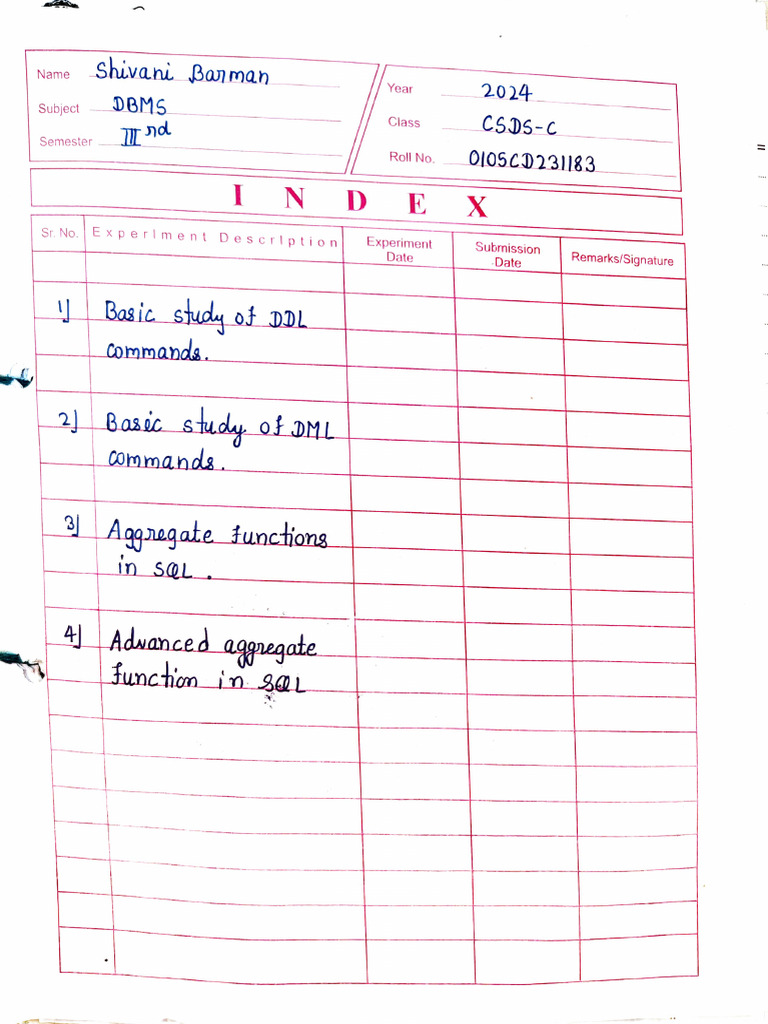 Name Shivani Barman
Subject DBMS
Semester III nd
Year 2024
Class CSDS-C
Roll No. 0105CD231183
INDEX
Sr. No. Experiment Description Experiment Date Submission Date Remarks/Signature
1] Basic study of DDL
commands.
2] Basic study of DML
commands.
3] Aggregate functions
in SQL.
4] Advanced aggregate
function in SQL